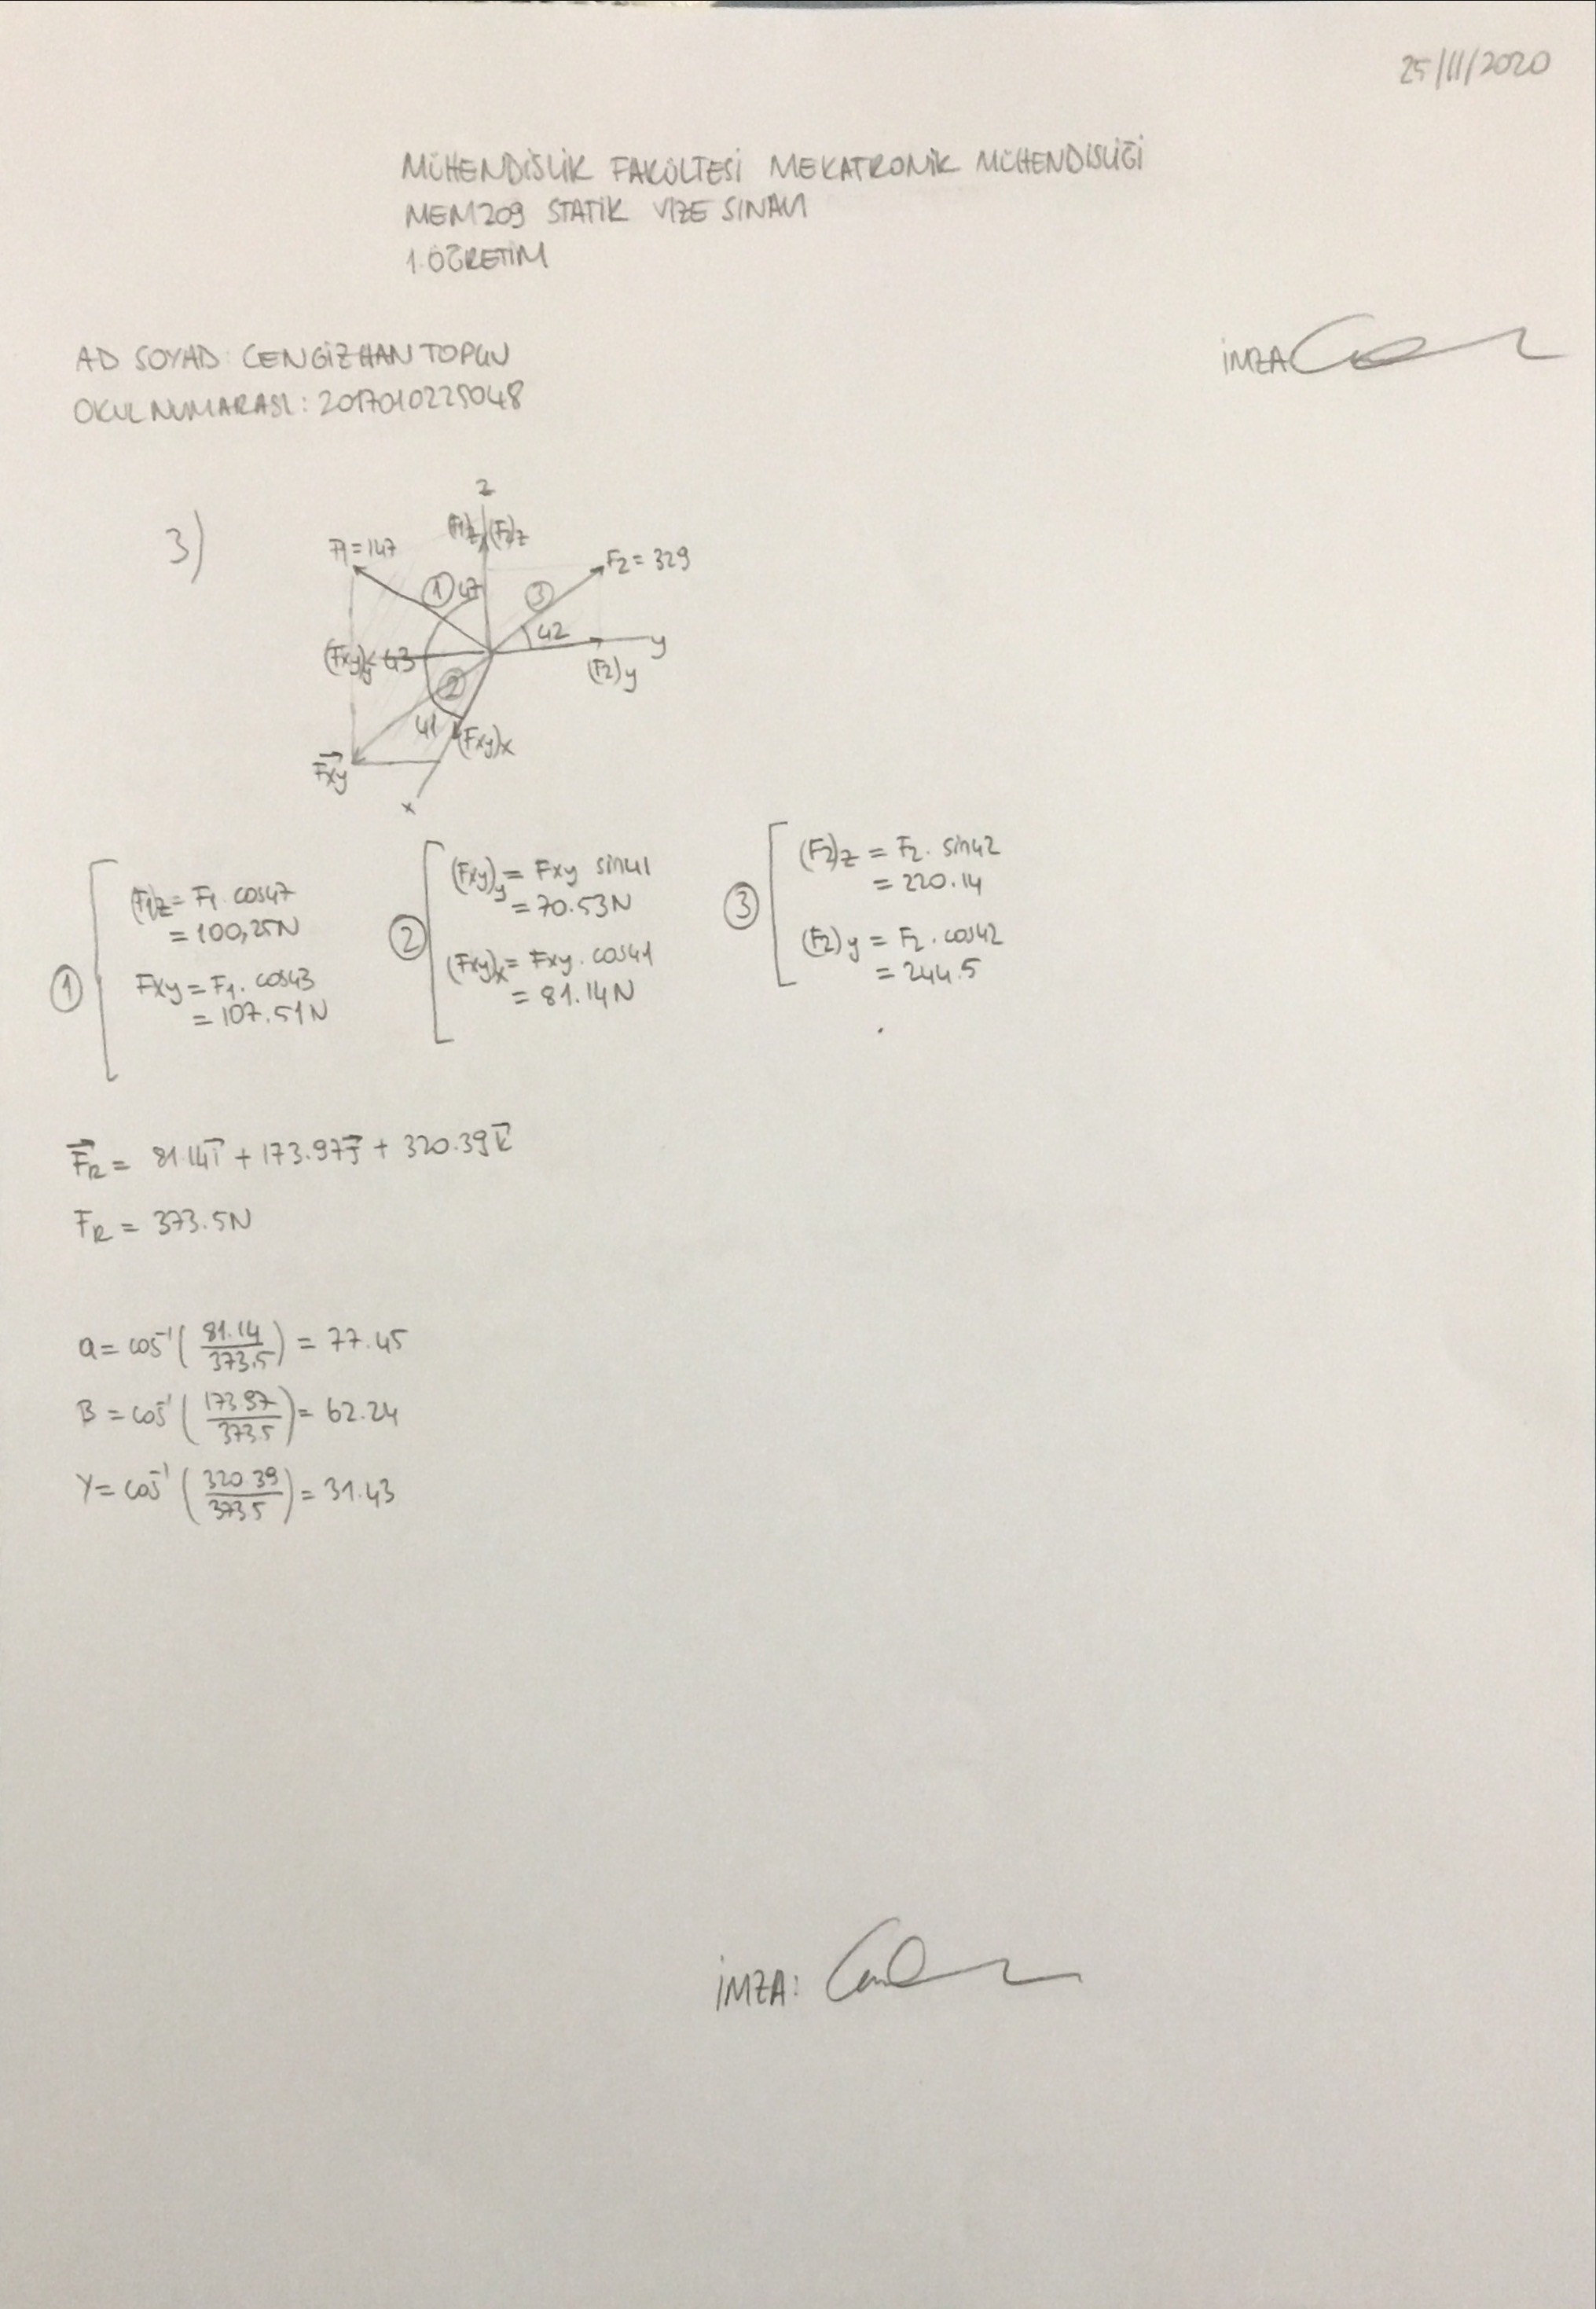 25/11/2020
MÜHENDİSLİK FAKÜLTESİ MEKATRONİK MÜHENDİSLİĞİ
MEM209 STATİK VİZE SINAVI
1.ÖĞRETİM
AD SOYAD: CENGİZHAN TOPÇU
İMZA
OKUL NUMARASI: 2017010225048
3)
z
(F1)z (F2)z
F1=147
F2=329
① 47
③
42
y
(Fxy)y 43
(F2)y
②
41
(Fxy)x
Fxy
x
① (F1)z = F1 cos47
= 100,25N
Fxy = F1. cos43
= 107.51N
② (Fxy)y = Fxy sin41
= 70.53N
(Fxy)x = Fxy. cos41
= 81.14N
③ (F2)z = F2. sin42
= 220.14
(F2)y = F2. cos42
= 244.5
FR = 81.14i + 173.97j + 320.39k
FR = 373.5N
a = cos⁻¹(81.14/373.5) = 77.45
B = cos⁻¹(173.97/373.5) = 62.24
γ = cos⁻¹(320.39/373.5) = 31.43
İMZA: